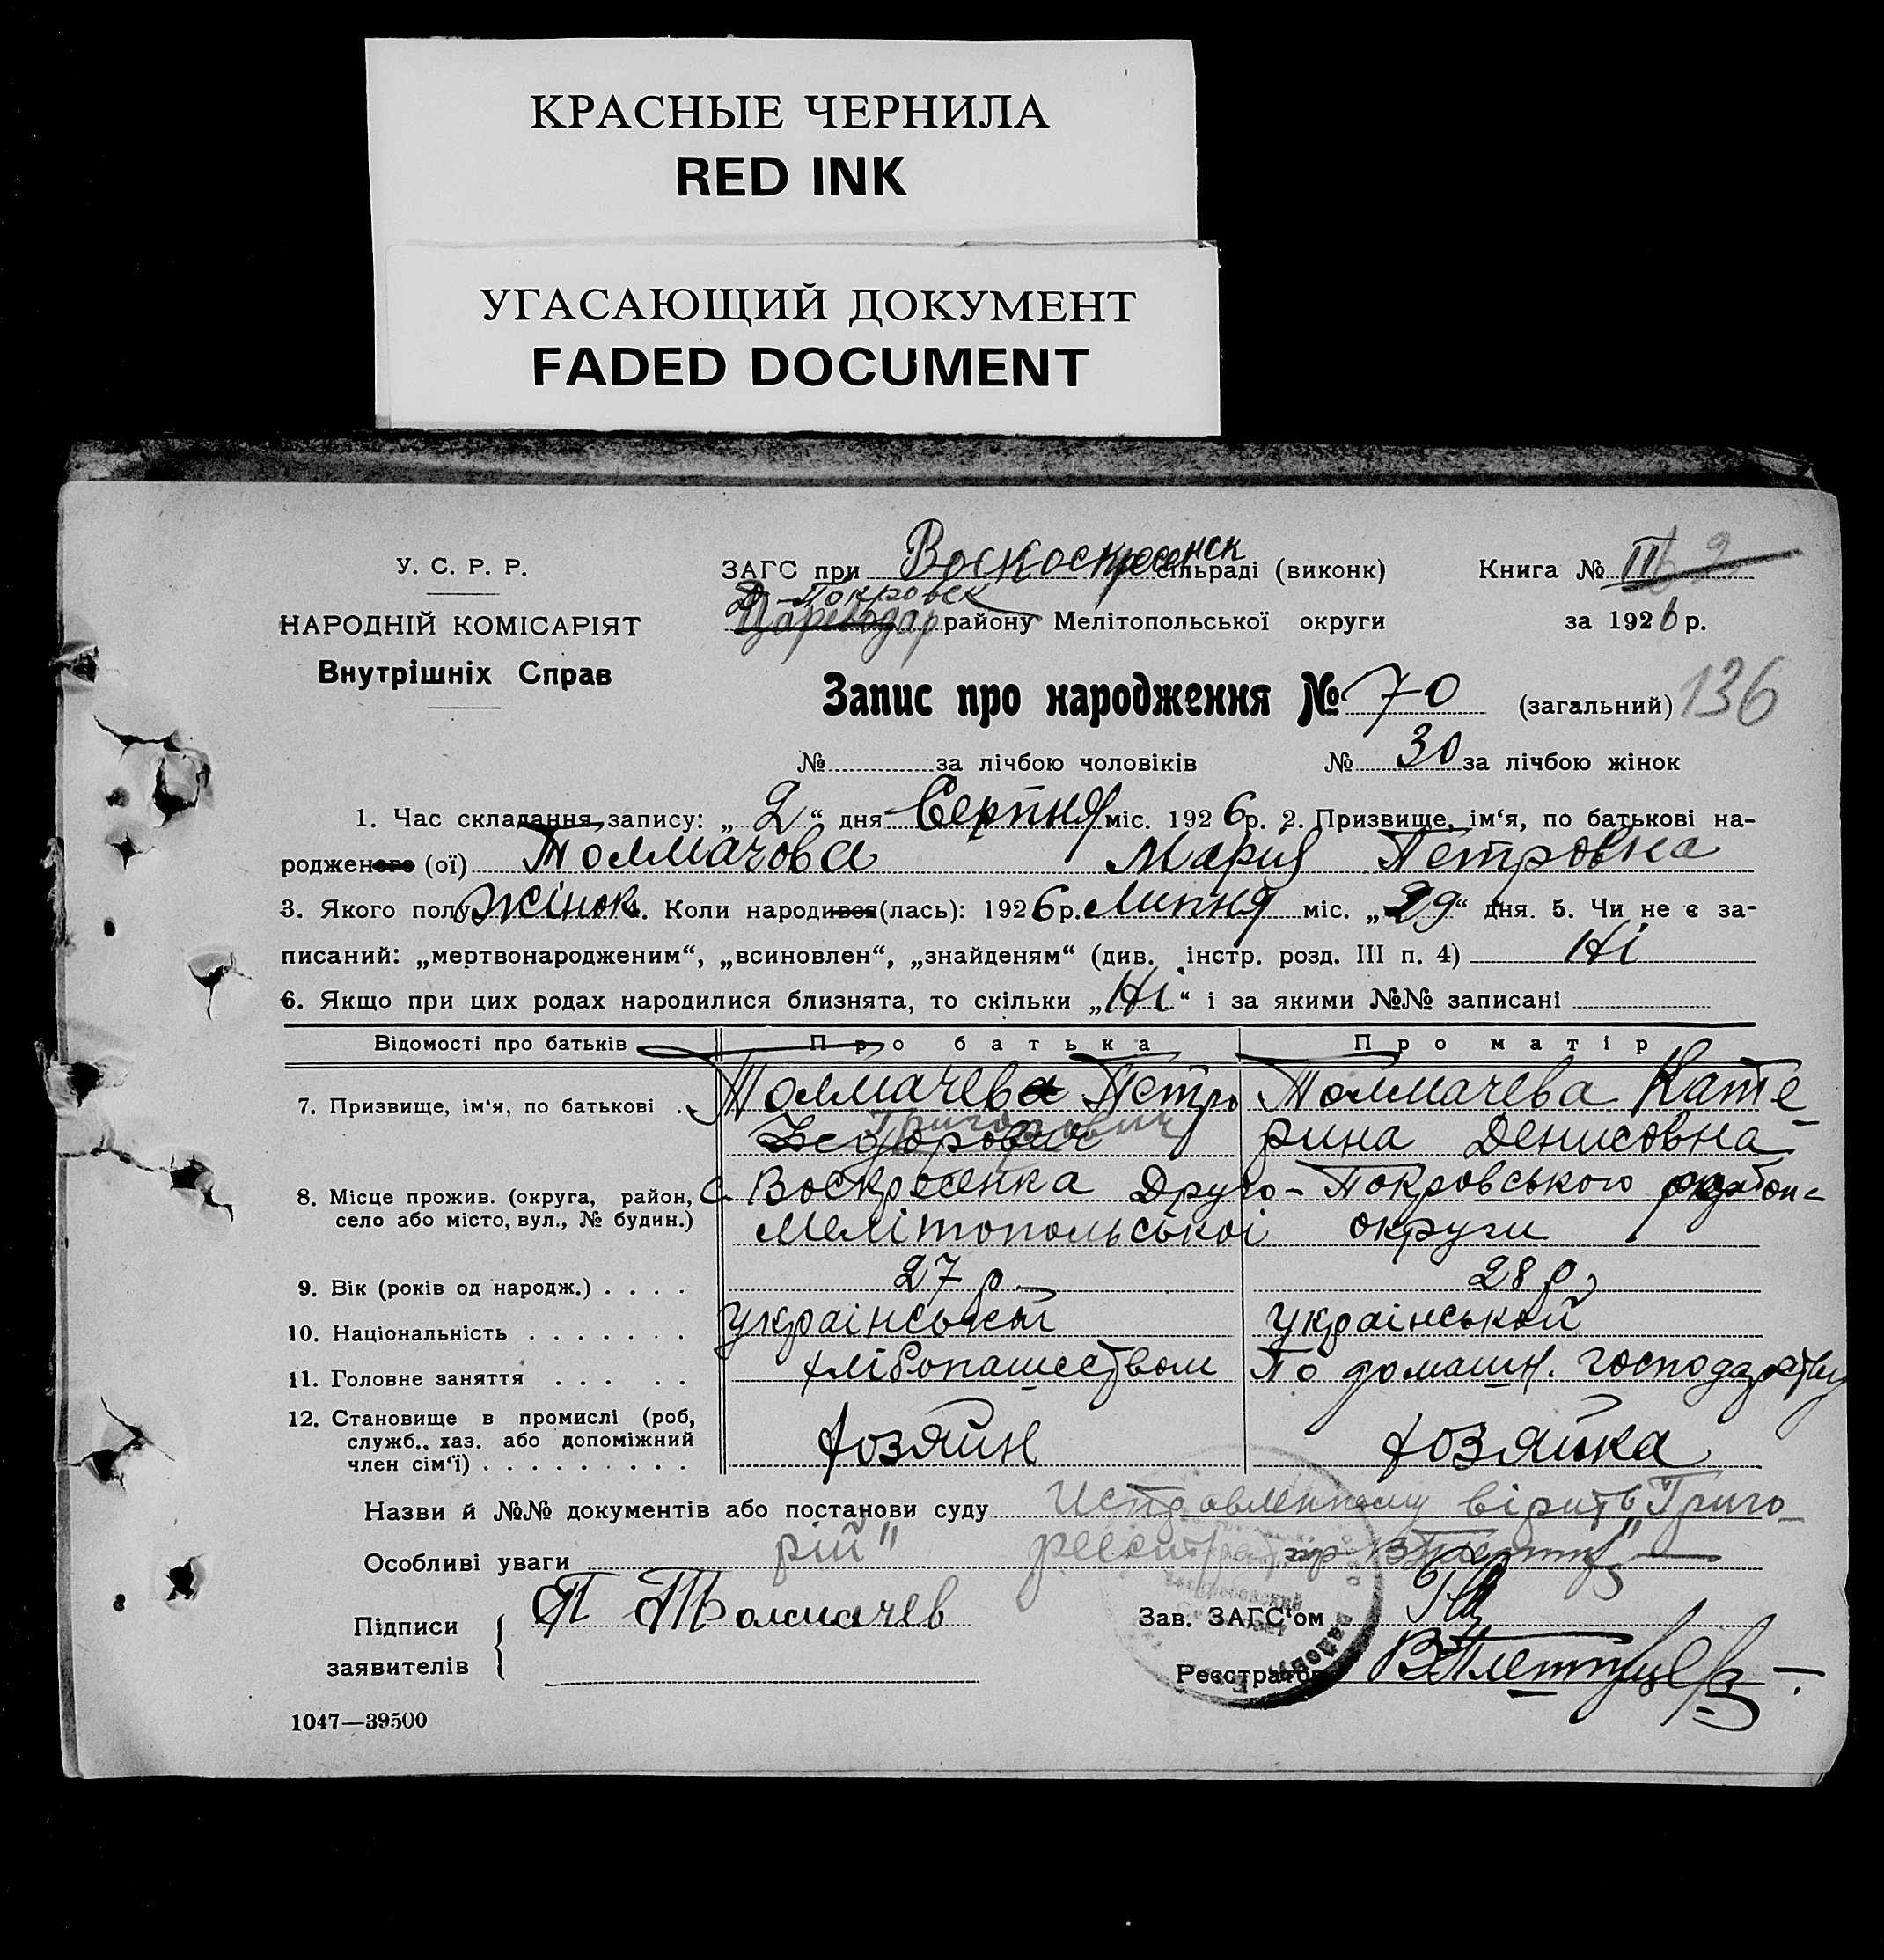 КРАСНЫЕ ЧЕРНИЛА
RED INK
УГАСАЮЩИЙ ДОКУМЕНТ
FADED DOCUMENT
У. С. Р. Р.
НАРОДНІЙ КОМІСАРІЯТ
Внутрішніх Справ
ЗАГС при Воскоскресенск сільраді (виконк)
Книга № III
Д-Покровск
Цареводар району Мелітопольської округи
за 1926 р.
Запис про народження № 70 (загальний) 136
№ за лічбою чоловіків № 30 за лічбою жінок
1. Час складання запису: „2“ дня Серпня міс. 1926 р. 2. Призвище, ім‘я, по батькові на-
родженого (ої) Толмачова Мария Петровна
3. Якого полу жінок. 4. Коли народився (лась): 1926 р. Липня міс. „29“ дня. 5. Чи не є за-
писаний: „мертвонародженим“, „всиновлен“, „знайденям“ (див. інстр. розд. III п. 4) Ні
6. Якщо при цих родах народилися близнята, то скільки „Ні“ і за якими №№ записані
Відомості про батьків Про батька Про матір
7. Призвище, ім‘я, по батькові . Толмачева Петро Толмачева Кате-
Федорович Григорович рина Денисовна
8. Місце прожив. (округа, район, село або місто, вул., № будин.) с. Воскресенка Друго-Покровського
Мелітопольської округи
9. Вік (років од народж.) . . . . 27 р. 28 р.
10. Національність . . . . . . . української українськой
11. Головне заняття . . . . . хлібопашеством По домашн. господарству
12. Становище в промислі (роб, служб., хаз. або допоміжний член сім‘ї) . . . . . . . . . хозяин хозяйка
Назви й №№ документів або постанови суду Исправленному вірить „Григо-
Особливі уваги рій"
Підписи заявителів П Толмачев
Зав. ЗАГС‘ом
Реєстратор
1047—39500